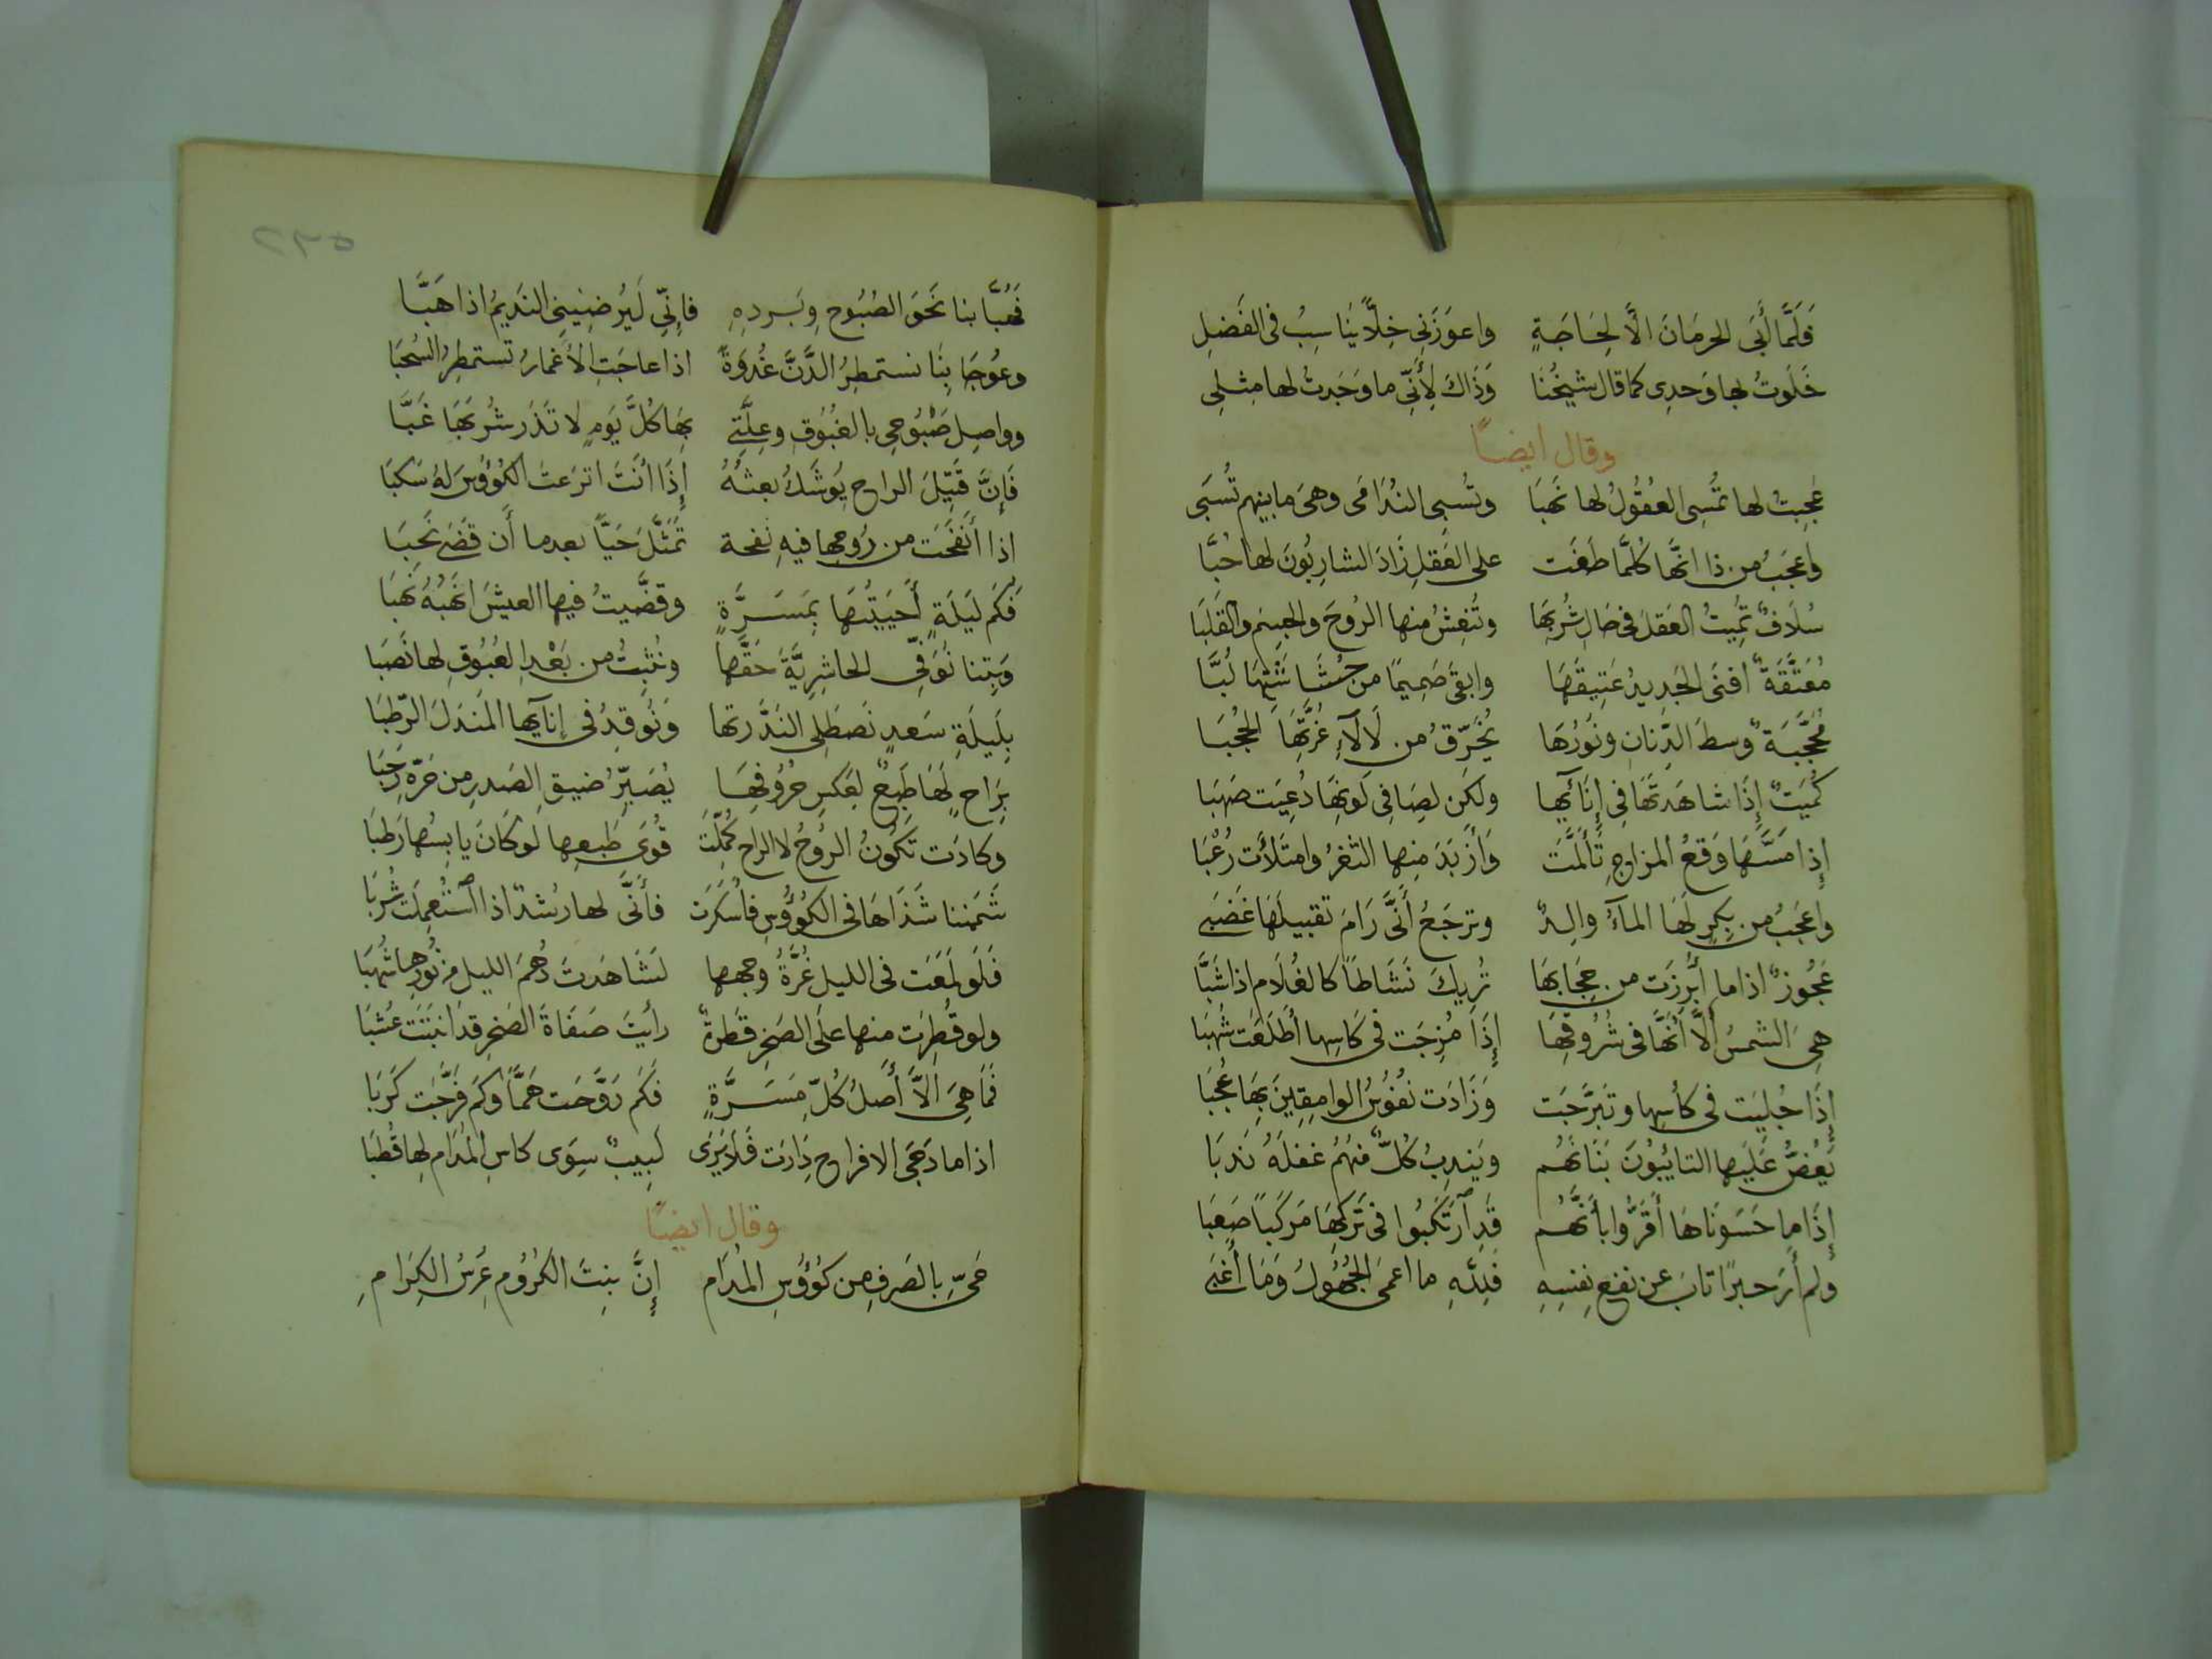 فَلَمَّا أَبَى الحرمَانَ الَّا لِحَاجَةٍ واعوَزَنى خِلًّا يُناسِبُ فى الفَضلِ
خَلَوتُ بها وَحدِى كما قال شيخُنَا وَذَاكَ لِأَنِّى ما وَجَدتُ لها مِثلِى
وقال ايضًا
عَجِبتُ لها تُمسِى العُقُولُ لها نَهبَا وتُسبِى النُدَامَى وهىَ ما بينهم تُسبَى
واعجَبُ من ذا انَّهَا كُلَّمَا طَغَت على العَقلِ زَادَ الشارِبُونَ لها حُبَّا
سُلَافٌ تُمِيتُ العَقلَ فى حَالِ شُربِهَا وتُنعِشُ منها الرُوحَ والجِسمَ والقَلبَا
مُعَتَّقَةٌ افنَى الجَدِيدُ عَتِيقَهَا وابقَى صَمِيمًا من حُشَاشَتِهَا لُبَّا
مُحَجَّبَةٌ وسطَ الدِّنانِ ونُورُهَا يُخَرِّقُ من لَألآءِ غُرَّتِهَا الحُجبَا
كُمَيتٌ إِذَا شاهَدتَهَا فِى إِنَائها ولكن لِصَافِى لَونِهَا دُعِيَت صَهبَا
إِذا مَسَّهَا وَقعُ المزاجِ تَأَلَّمَت وَأَزبَدَ منها الثغرُ وامتَلَأَت رُعْبَا
واعجَبُ من بِكرٍ لَهَا المآءُ والِدٌ وترجَعُ أَنَّى رَامَ تقبيلَهَا غَضبَى
عَجُوزٌ اذا ما أُبرِزَت من حِجَابِهَا تُرِيكَ نَشَاطاً كالغُلَامِ اذا شَبَّا
هِىَ الشمسُ أَلَّا أَنَّهَا فى شُرُوقِهَا إِذَا مُزِجَت فى كَاسِها أَطلَعَت شُهبَا
إِذَا جُلِيَت فى كأسِها وتَبَرَّجَت وَزَادَت نفُوسُ الوامِقِينَ بِهَا عُجبَا
يَعُضُّ عَلَيها التائبُونَ بَنَانَهُم ويَندِبُ كُلٌّ منهُم عَقلَهُ نَدبَا
إِذَا ما حَسَونَاهَا أَقَرُّوا بأَنَّهُم قَدِ ارتَكَبُوا فى تَركِهَا مَركَباً صَعبَا
ولم أَرَ حبرًا تابَ عن نفعِ نفسِهِ فلِلَّهِ ما اعمَى الجَهُولَ وَمَا أَغبَى
فَهُبَّا بنا نَحَوَ الصُبُوحِ وبَردِهِ فإِنّى لَيُرضِينِى النَدِيمُ اذا هَبَّا
وعُوجَا بِنَا نستمطِرُ الدَّنَّ غُدوَةً اذا عاجَتِ الأَغمارُ تستمطِرُ السُحبَا
وواصِل صَبُوحِى بالغُبُوقِ وعِلَّتِى بِهَا كُلَّ يَومٍ لا تَذَر شُربَهَا غَبَّا
فَإِنَّ قَتِيلَ الراحِ يُوشَكُ بعثُهُ إِذَا أَنتَ اترَعتَ الكُؤُوسَ لهُ سَكبَا
اذا أَنفَحَت من رُوحِها فيهِ نفحة تَمَثَّلَ حَيًّا بعدما أَن قَضَى نَحبَا
فَكَم لَيلَةٍ أَحيَيتُهَا بِمَسَرَّةٍ وقضَّيتُ فيها العيشَ انهَبُهُ نَهبَا
وَبِتنا نُوَفِّى الحاشِرِيَّةَ حَقَّها ونُثبِتُ من بَعْدِ الغُبُوقِ لها نَصبَا
بِلَيلَةِ سَعدٍ نَصطَلِى النَدَّ وَتَها وَنُوقِدُ فى إِنآيها المَندَلَ الرّطبَا
بِرَاحٍ لَهَا طَبعٌ لِعَكسِ حُرُوفِهَا يُصَيِّرُ ضيقَ الصَدرِ مِن حَرّهِ رَحبَا
وكادَت تَكُونُ الرُوحُ لا الراحَ كُمِّلَت قُوَى طَبعِها لو كَانَ يابِسُها رَطبَا
شَمَمنا شَذَاهَا فى الكُؤُوسِ فأَسكَرَت فأَنَّى لها رُشدٌ اذا استُعمِلَت شُربَا
فَلَو لَمَعَت فى الليلِ غُرَّةُ وجهها لَشَاهَدتَ دُهمَ الليلِ من نُورِهِا شُهبَا
ولو قُطِرَت منها على الصَخرِ قَطرةٌ رأَيتَ صَفَاةَ الصَخرِ قد انبَتَت عُشبَا
فَمَا هِىَ اَلَّا أَصلُ كُلّ مَسَرَّةٍ فَكَم رَوَّحَت هَمًّا وكَم فَرَّجَت كَربَا
اذا ما رَحَى الافراحِ دَارَت فَلَا يَرَى لَبِيبٌ سِوَى كاسِ المُدَامِ لها قُطبَا
وقال ايضًا
حَىِّ بِالصَرفِ من كؤُوسِ المُدَامِ إِنَّ بِنتَ الكرُومِ عُرسُ الكِرَامِ